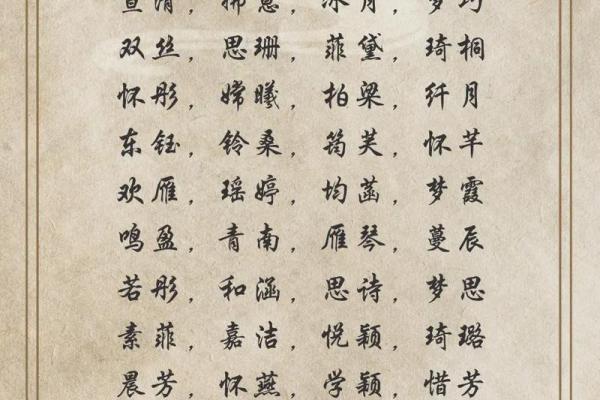 冰月，梦巧
双丝，思珊，菲黛，琦桐
怀彤，嫦曦，柏梁，纤月
东钰，铃桑，筠芙，怀芊
欢雁，瑶婷，均菡，梦霞
鸣盈，青南，雁琴，蔓辰
若彤，和涵，思诗，梦思
素菲，嘉洁，悦颖，琦璐
晨芳，怀燕，学颖，惜芳